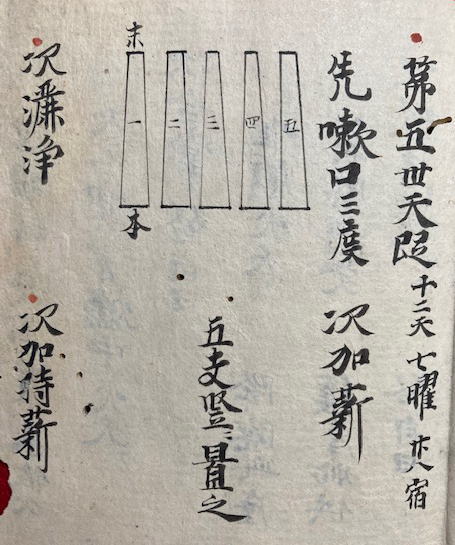 第五世天段 十二天 七曜 廿八宿
先嗽口三度 次加薪
末
五
四
三
二
一
本
五支竪ニ置之
次灑浄 次加持薪